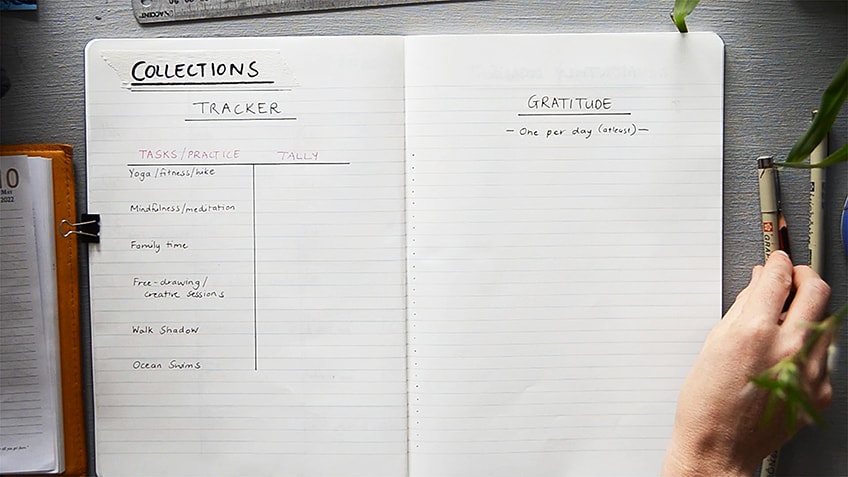 COLLECTIONS
TRACKER
TASKS/PRACTICE TALLY
Yoga/fitness/hike
Mindfulness/meditation
Family time
Free-drawing/
creative sessions
Walk Shadow
Ocean Swims
GRATITUDE
— One per day (atleast) —
10
MAY
2022
ACCENT